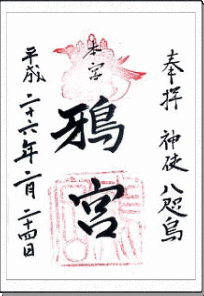 奉拝 神使 八咫烏
本宮
鴉宮
平成二十六年二月二十四日